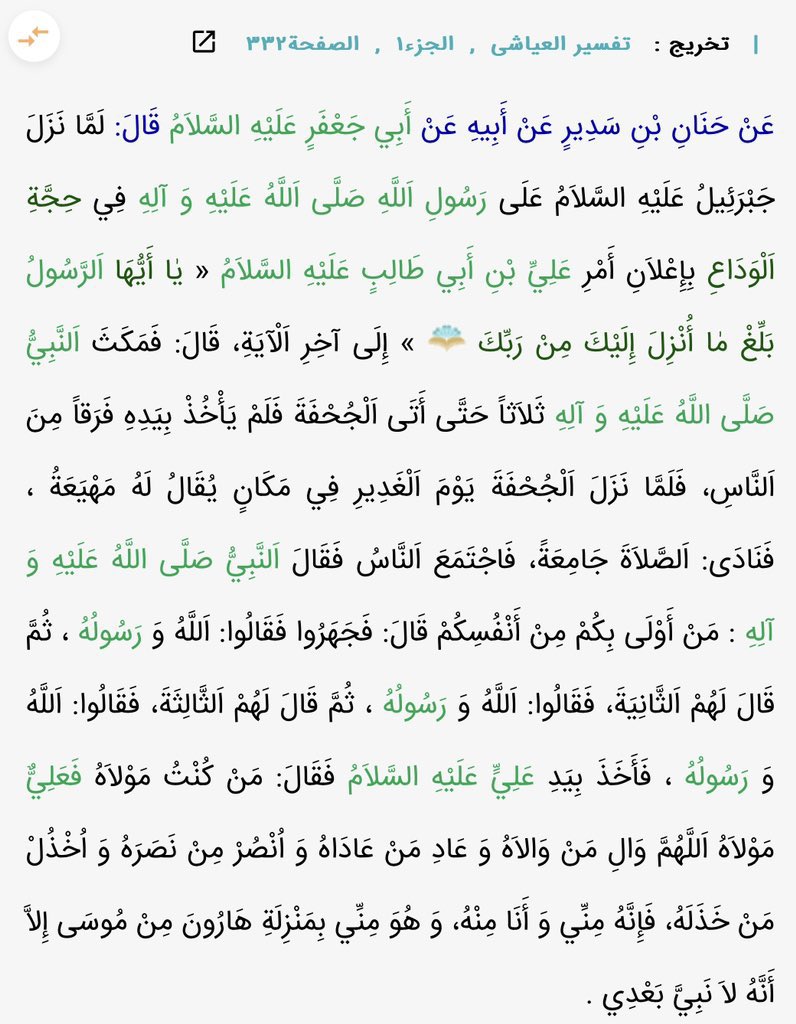 | تخریج : تفسير العياشی , الجزء۱ , الصفحة۳۳۲
عَنْ حَنَانِ بْنِ سَدِيرٍ عَنْ أَبِيهِ عَنْ أَبِي جَعْفَرٍ عَلَيْهِ السَّلاَمُ قَالَ: لَمَّا نَزَلَ
جَبْرَئِيلُ عَلَيْهِ السَّلاَمُ عَلَى رَسُولِ اَللَّهِ صَلَّى اَللَّهُ عَلَيْهِ وَ آلِهِ فِي حِجَّةِ
اَلْوَدَاعِ بِإِعْلاَنِ أَمْرِ عَلِيِّ بْنِ أَبِي طَالِبٍ عَلَيْهِ السَّلاَمُ « يٰا أَيُّهَا اَلرَّسُولُ
بَلِّغْ مٰا أُنْزِلَ إِلَيْكَ مِنْ رَبِّكَ » إِلَى آخِرِ اَلْآيَةِ، قَالَ: فَمَكَثَ اَلنَّبِيُّ
صَلَّى اللَّهُ عَلَيْهِ وَ آلِهِ ثَلاَثاً حَتَّى أَتَى اَلْجُحْفَةَ فَلَمْ يَأْخُذْ بِيَدِهِ فَرَقاً مِنَ
اَلنَّاسِ، فَلَمَّا نَزَلَ اَلْجُحْفَةَ يَوْمَ اَلْغَدِيرِ فِي مَكَانٍ يُقَالُ لَهُ مَهْيَعَةُ ،
فَنَادَى: اَلصَّلاَةَ جَامِعَةً، فَاجْتَمَعَ اَلنَّاسُ فَقَالَ اَلنَّبِيُّ صَلَّى اللَّهُ عَلَيْهِ وَ
آلِهِ : مَنْ أَوْلَى بِكُمْ مِنْ أَنْفُسِكُمْ قَالَ: فَجَهَرُوا فَقَالُوا: اَللَّهُ وَ رَسُولُهُ ، ثُمَّ
قَالَ لَهُمْ اَلثَّانِيَةَ، فَقَالُوا: اَللَّهُ وَ رَسُولُهُ ، ثُمَّ قَالَ لَهُمْ اَلثَّالِثَةَ، فَقَالُوا: اَللَّهُ
وَ رَسُولُهُ ، فَأَخَذَ بِيَدِ عَلِيٍّ عَلَيْهِ السَّلاَمُ فَقَالَ: مَنْ كُنْتُ مَوْلاَهُ فَعَلِيٌّ
مَوْلاَهُ اَللَّهُمَّ وَالِ مَنْ وَالاَهُ وَ عَادِ مَنْ عَادَاهُ وَ اُنْصُرْ مِنْ نَصَرَهُ وَ اُخْذُلْ
مَنْ خَذَلَهُ، فَإِنَّهُ مِنِّي وَ أَنَا مِنْهُ، وَ هُوَ مِنِّي بِمَنْزِلَةِ هَارُونَ مِنْ مُوسَى إِلاَّ
أَنَّهُ لاَ نَبِيَّ بَعْدِي .